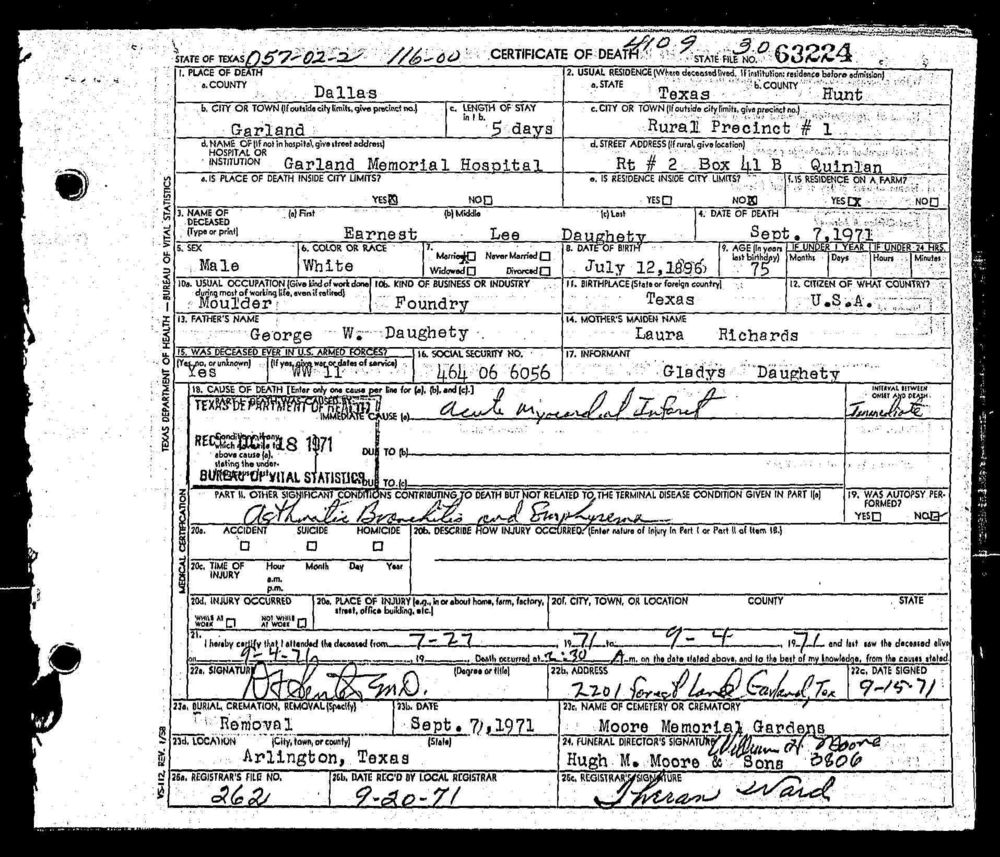 STATE OF TEXAS 057-02-2 116-00 CERTIFICATE OF DEATH 4109 30 STATE FILE NO. 63224
1. PLACE OF DEATH
a. COUNTY Dallas
2. USUAL RESIDENCE (Where deceased lived. If institution: residence before admission)
a. STATE Texas b. COUNTY Hunt
b. CITY OR TOWN (If outside city limits, give precinct no.) Garland
c. LENGTH OF STAY in 1 b. 5 days
c. CITY OR TOWN (If outside city limits, give precinct no.) Rural Precinct # 1
d. NAME OF (If not in hospital, give street address) HOSPITAL OR INSTITUTION Garland Memorial Hospital
d. STREET ADDRESS (If rural, give location) Rt # 2 Box 41 B Quinlan
e. IS PLACE OF DEATH INSIDE CITY LIMITS? YES☒ NO☐
e. IS RESIDENCE INSIDE CITY LIMITS? YES☐ NO☒
f. IS RESIDENCE ON A FARM? YES☒ NO☐
3. NAME OF DECEASED (Type or print) (a) First Earnest (b) Middle Lee (c) Last Daughety
4. DATE OF DEATH Sept. 7,1971
5. SEX Male
6. COLOR OR RACE White
7. Married☒ Never Married☐ Widowed☐ Divorced☐
8. DATE OF BIRTH July 12,1896
9. AGE (In years last birthday) 75
IF UNDER 1 YEAR Months Days
IF UNDER 24 HRS. Hours Minutes
10a. USUAL OCCUPATION (Give kind of work done during most of working life, even if retired) Moulder
10b. KIND OF BUSINESS OR INDUSTRY Foundry
11. BIRTHPLACE (State or foreign country) Texas
12. CITIZEN OF WHAT COUNTRY? U.S.A.
13. FATHER'S NAME George W. Daughety
14. MOTHER'S MAIDEN NAME Laura Richards
15. WAS DECEASED EVER IN U.S. ARMED FORCES? (Yes, no, or unknown) (If yes, give war or dates of service) WW 11
16. SOCIAL SECURITY NO. 464 06 6056
17. INFORMANT Gladys Daughety
18. CAUSE OF DEATH [Enter only one cause per line for (a), (b), and (c).]
INTERVAL BETWEEN ONSET AND DEATH
PART I. DEATH WAS CAUSED BY:
IMMEDIATE CAUSE (a) Acute Myocardial Infarct Immediate
TEXAS DEPARTMENT OF HEALTH
REC'D 18 1971
BUREAU OF VITAL STATISTICS
Conditions, if any, which gave rise to above cause (a), stating the under-
DUE TO (b)
DUE TO (c)
PART II. OTHER SIGNIFICANT CONDITIONS CONTRIBUTING TO DEATH BUT NOT RELATED TO THE TERMINAL DISEASE CONDITION GIVEN IN PART I(a)
Asthmatic Bronchitis and Emphysema
19. WAS AUTOPSY PERFORMED? YES☐ NO☑
20a. ACCIDENT ☐ SUICIDE ☐ HOMICIDE ☐
20b. DESCRIBE HOW INJURY OCCURRED. (Enter nature of injury in Part I or Part II of Item 18.)
20c. TIME OF INJURY Hour a.m. p.m. Month Day Year
20d. INJURY OCCURRED WHILE AT WORK ☐ NOT WHILE AT WORK ☐
20e. PLACE OF INJURY (e.g., in or about home, farm, factory, street, office building, etc.)
20f. CITY, TOWN, OR LOCATION COUNTY STATE
21. I hereby certify that I attended the deceased from 7-27 1971 to 9-4 1971 and last saw the deceased alive
on 9-4-71 19 Death occurred at 2:30 A m. on the date stated above, and to the best of my knowledge, from the causes stated.
22a. SIGNATURE M.D. (Degree or title)
22b. ADDRESS 2201 Forest Lane Garland, Tex
22c. DATE SIGNED 9-15-71
23a. BURIAL, CREMATION, REMOVAL (Specify) Removal
23b. DATE Sept. 7,1971
23c. NAME OF CEMETERY OR CREMATORY Moore Memorial Gardens
23d. LOCATION (City, town, or county) (State) Arlington, Texas
24. FUNERAL DIRECTOR'S SIGNATURE William H. Moore
Hugh M. Moore & Sons 3806
25a. REGISTRAR'S FILE NO. 262
25b. DATE REC'D BY LOCAL REGISTRAR 9-20-71
25c. REGISTRAR'S SIGNATURE Theran Ward
TEXAS DEPARTMENT OF HEALTH — BUREAU OF VITAL STATISTICS
MEDICAL CERTIFICATION
VS-112, REV. 1/58